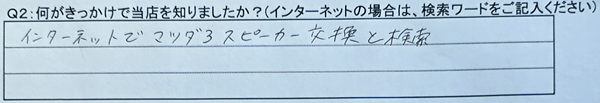 Q2:何がきっかけで当店を知りましたか？(インターネットの場合は、検索ワードをご記入ください)
インターネットで マツダ3 スピーカー 交換 と検索